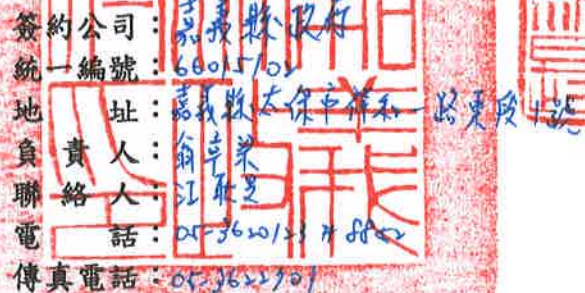 簽約公司：嘉義縣政府
統一編號：66015102
地址：嘉義縣太保市祥和一路東段1號
負責人：翁章梁
聯絡人：江
電話：05-3620123 # 8852
傳真電話：05-3622701